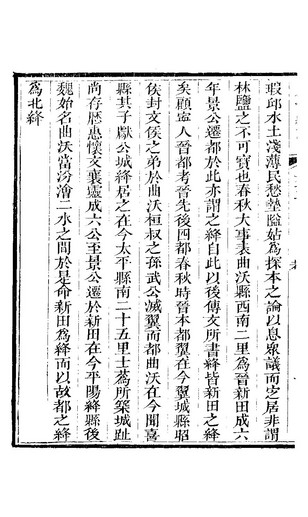 瑕邱水土淺薄民愁墊隘姑爲探本之論以息衆議而芝居非謂
林鹽之不可寳也春秋大事表曲沃縣西南二里爲晉新田成六
年景公遷都於此亦謂之絳自此以後傳文所書絳皆新田之絳
矣顧寧人晉都考晉先後四都春秋時晉本都翼在今翼城縣昭
侯封文侯之弟於曲沃桓叔之孫武公滅翼而都曲沃在今聞喜
縣其子獻公城絳居之在今太平縣南二十五里土爲所築城趾
尚存歴惠懷文襄靈成六公至景公遷於新田在今平陽絳縣後
魏始名曲沃當汾澮二水之間於是命新田爲絳而以故都之絳
爲北絳